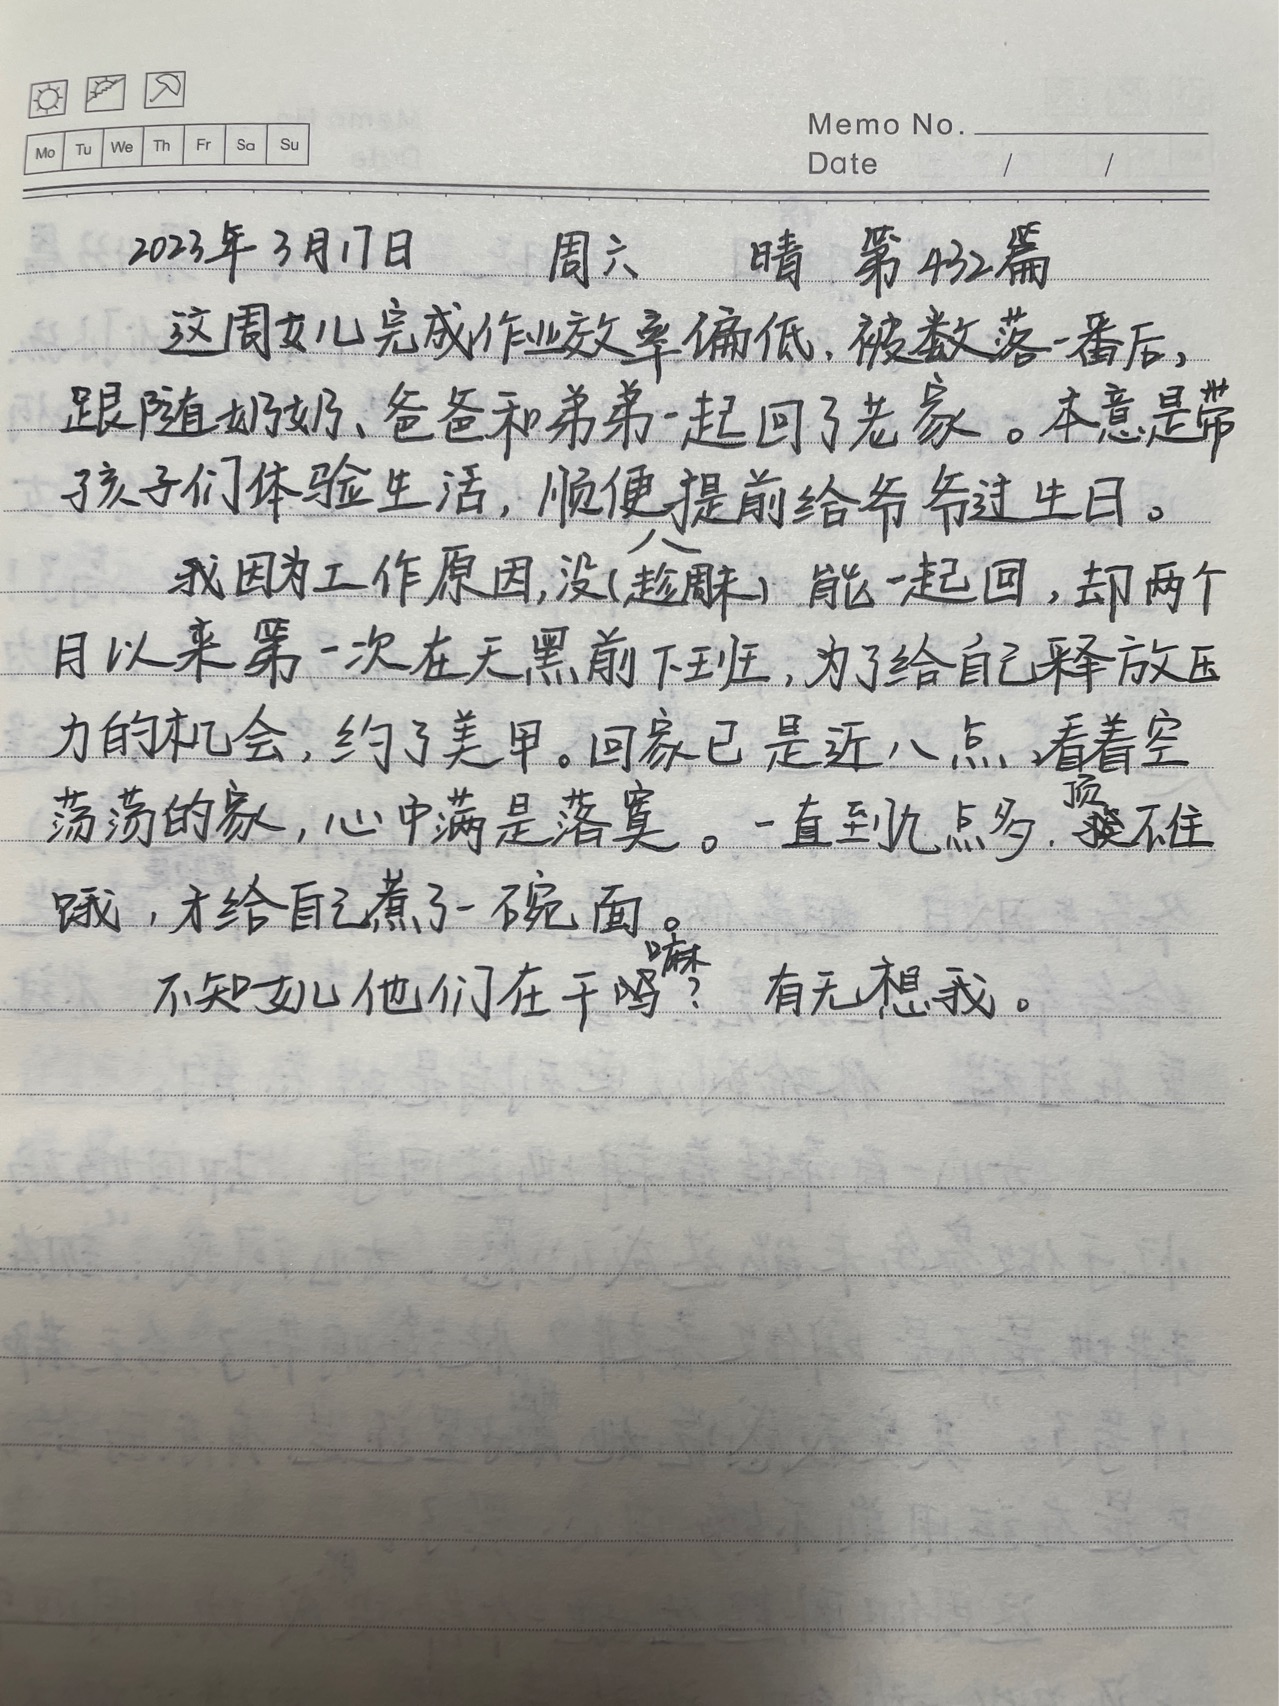 Mo Tu We Th Fr Sa Su
Memo No.
Date / /
2023年3月17日 周六 晴 第432篇
这周女儿完成作业效率偏低,被数落一番后,
跟随奶奶、爸爸和弟弟一起回了老家。本意是带
孩子们体验生活,顺便提前给爷爷过生日。
我因为工作原因,没(趁周末)能一起回,却两个
月以来第一次在天黑前下班,为了给自己释放压
力的机会,约了美甲。回家已是近八点,看着空
荡荡的家,心中满是落寞。一直到九点多.顶不住
饿,才给自己煮了一碗面。
不知女儿他们在干嘛? 有无想我。